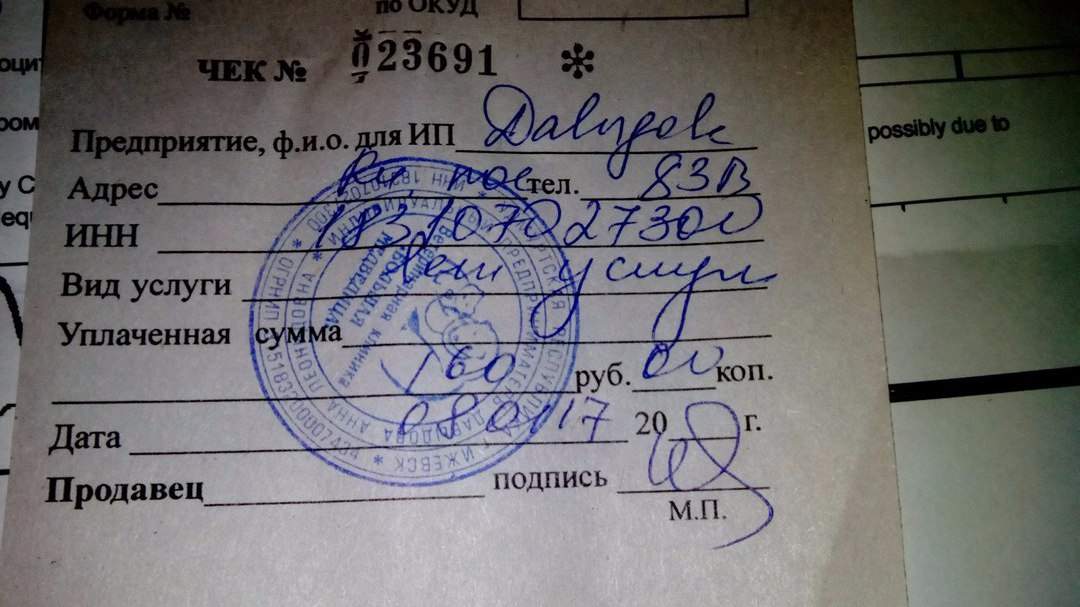 Форма №
по ОКУД
ЧЕК № 023691 *
possibly due to
Предприятие, ф.и.о. для ИП Давыдова
Адрес тел. 83В
ИНН 183107027300
Вид услуги услуги
Уплаченная сумма
160 руб. 00 коп.
Дата 08 01 17 20 г.
Продавец подпись
М.П.
УДМУРТСКАЯ РЕСПУБЛИКА * Г. ИЖЕВСК *
ИНДИВИДУАЛЬНЫЙ ПРЕДПРИНИМАТЕЛЬ ДАВЫДОВА АННА ЛЕОНИДОВНА *
Ветеринарная клиника
"БОЛЬШАЯ
МЕДВЕДИЦА"